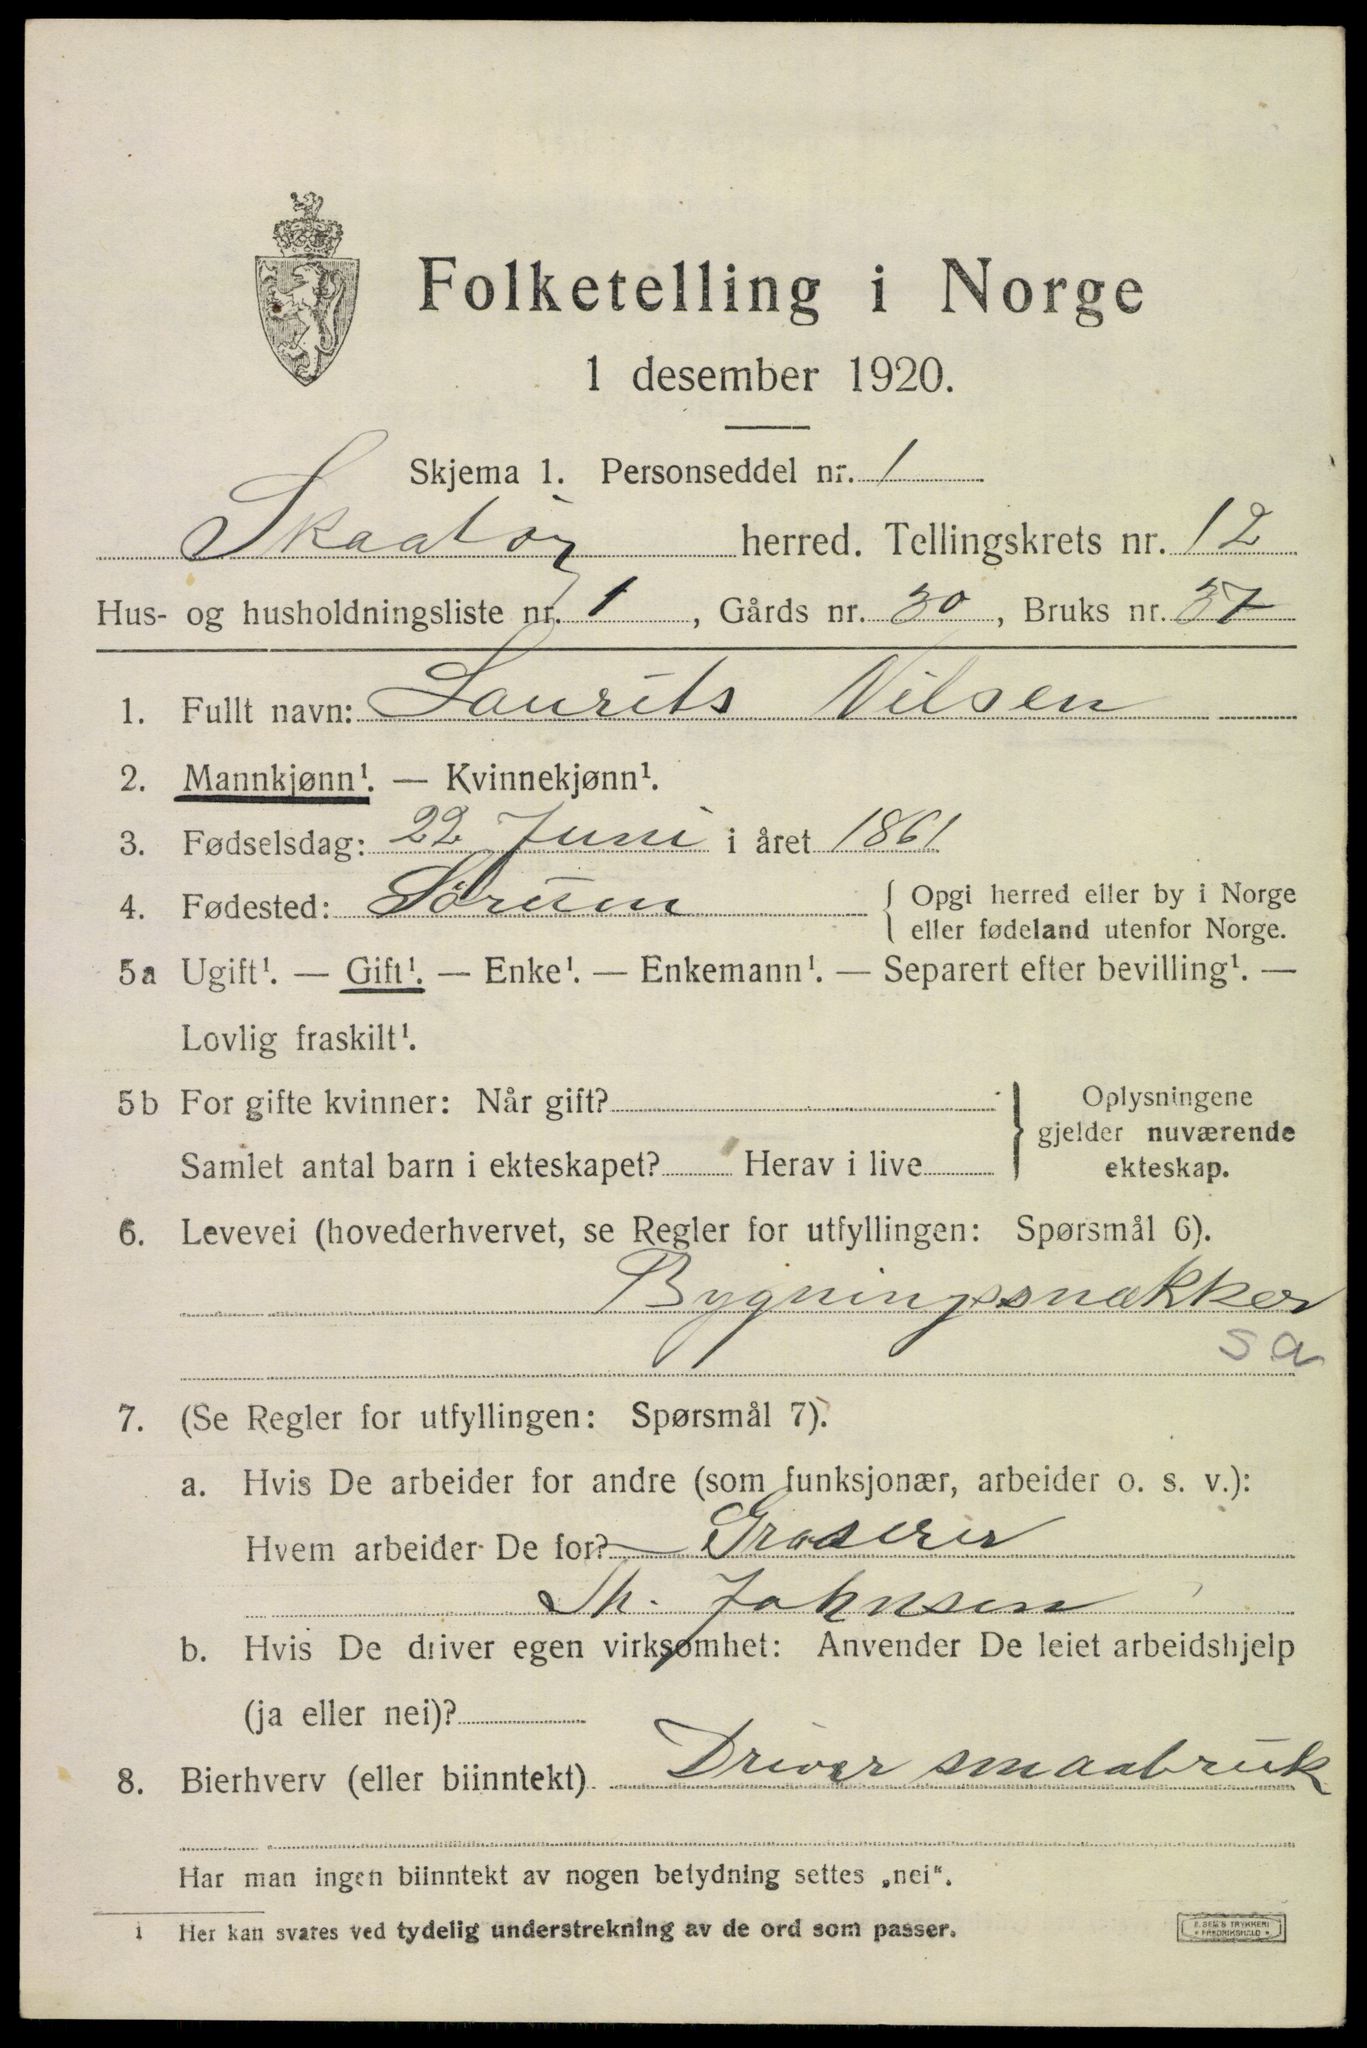 Folketelling i Norge
1 desember 1920.
Skjema 1. Personseddel nr. 1
Skaatøy herred. Tellingskrets nr. 12
Hus- og husholdningsliste nr. 1, Gårds nr. 30, Bruks nr. 37
1. Fullt navn: Laurits Nilsen
2. Mannkjønn¹. — Kvinnekjønn¹.
3. Fødselsdag: 22 Juni i året 1861
4. Fødested: Sørum { Opgi herred eller by i Norge
eller fødeland utenfor Norge.
5a Ugift¹. — Gift¹. — Enke¹. — Enkemann¹. — Separert efter bevilling¹. —
Lovlig fraskilt¹.
5b For gifte kvinner: Når gift?
Samlet antal barn i ekteskapet? Herav i live
} Oplysningene
gjelder nuværende
ekteskap.
6. Levevei (hovederhvervet, se Regler for utfyllingen: Spørsmål 6).
Bygningssnækker
sa
7. (Se Regler for utfyllingen: Spørsmål 7).
a. Hvis De arbeider for andre (som funksjonær, arbeider o. s. v.):
Hvem arbeider De for? Groserer
Th. Johnsen
b. Hvis De driver egen virksomhet: Anvender De leiet arbeidshjelp
(ja eller nei)?
8. Bierhverv (eller biinntekt) Driver smaabruk
Har man ingen biinntekt av nogen betydning settes „nei“.
1 Her kan svares ved tydelig understrekning av de ord som passer.
E. SEM'S TRYKKERI
FREDRIKSHALD